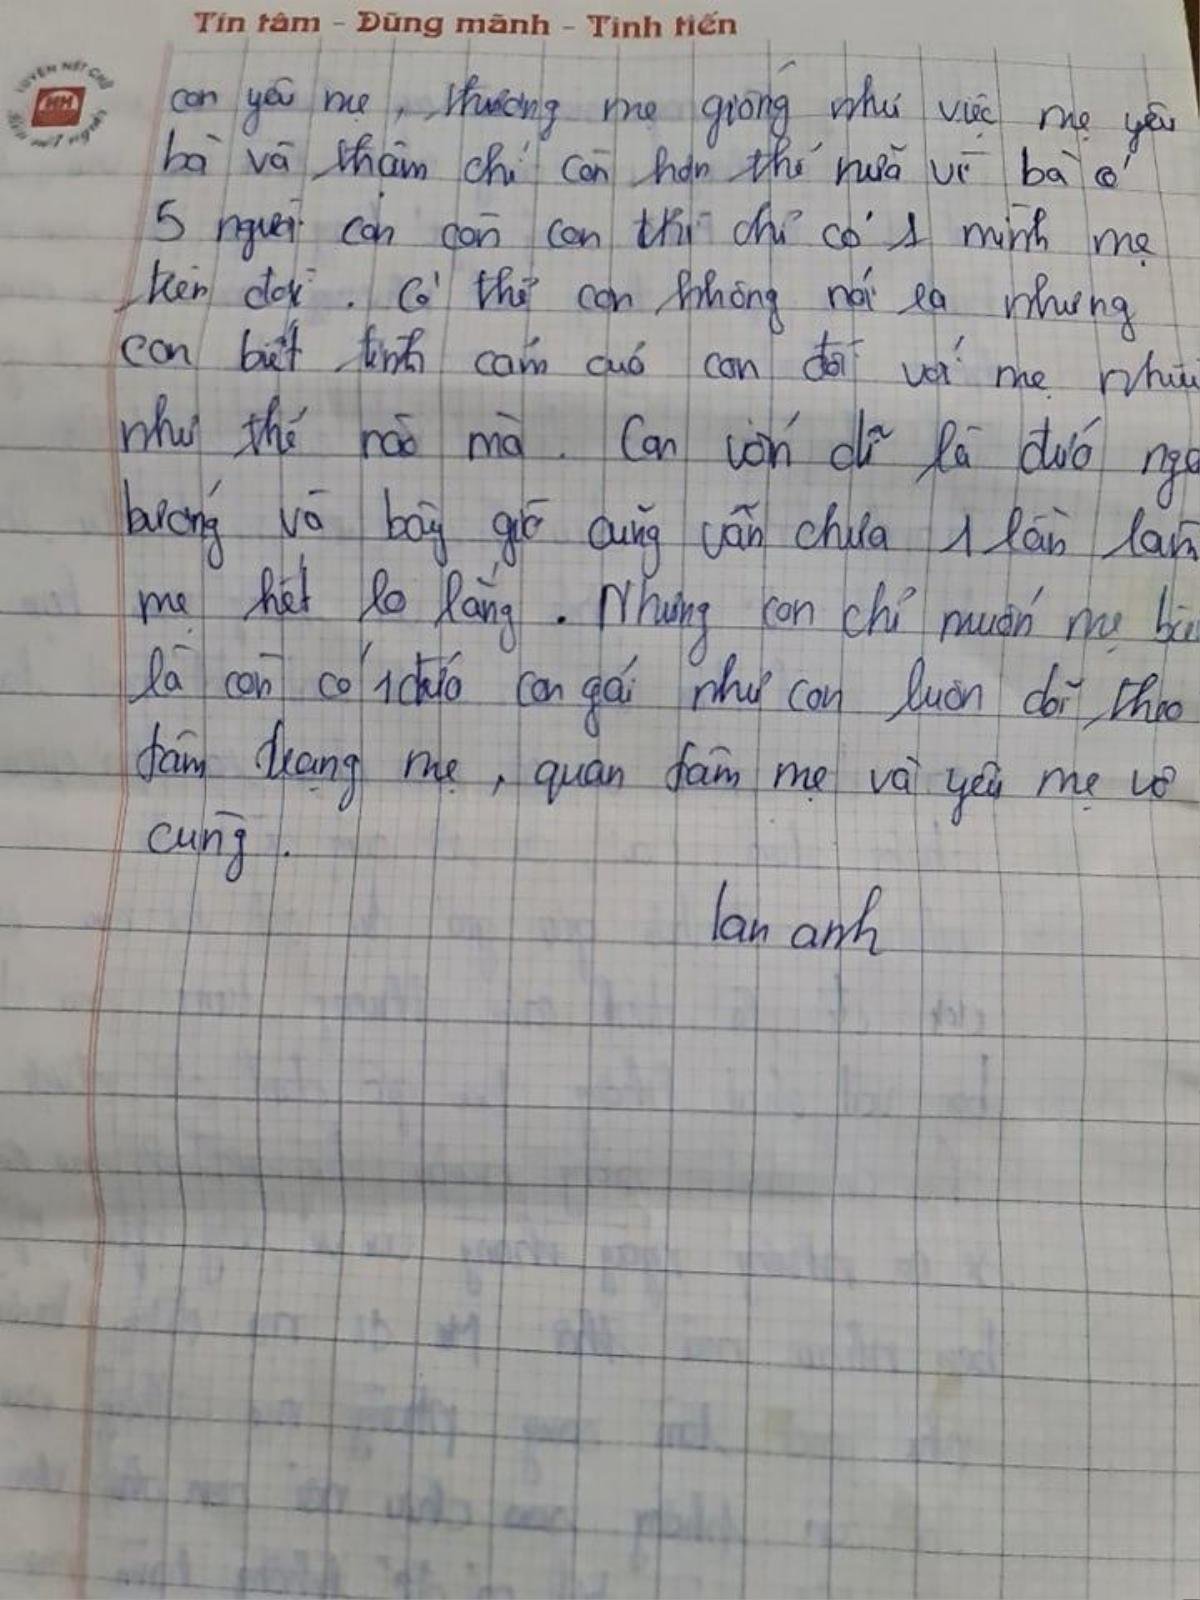 Tín tâm - Dũng mãnh - Tinh tiến
LUYỆN NÉT CHỮ
HH
RÈN NẾT NGƯỜI
con yêu mẹ, thương mẹ giống như việc mẹ yêu
bà và thậm chí còn hơn thế nữa vì bà có
5 người con còn con thì chỉ có 1 mình mẹ
trên đời. Có thể con không nói ra nhưng
con biết tình cảm của con đối với mẹ nhiều
như thế nào mà. Con vốn dĩ là đứa
bướng và bây giờ cũng vẫn chưa 1 lần làm
mẹ hết lo lắng. Nhưng con chỉ muốn mẹ
là còn có 1 đứa con gái như con luôn dõi theo
tâm trạng mẹ, quan tâm mẹ và yêu mẹ vô
cùng.
lan anh